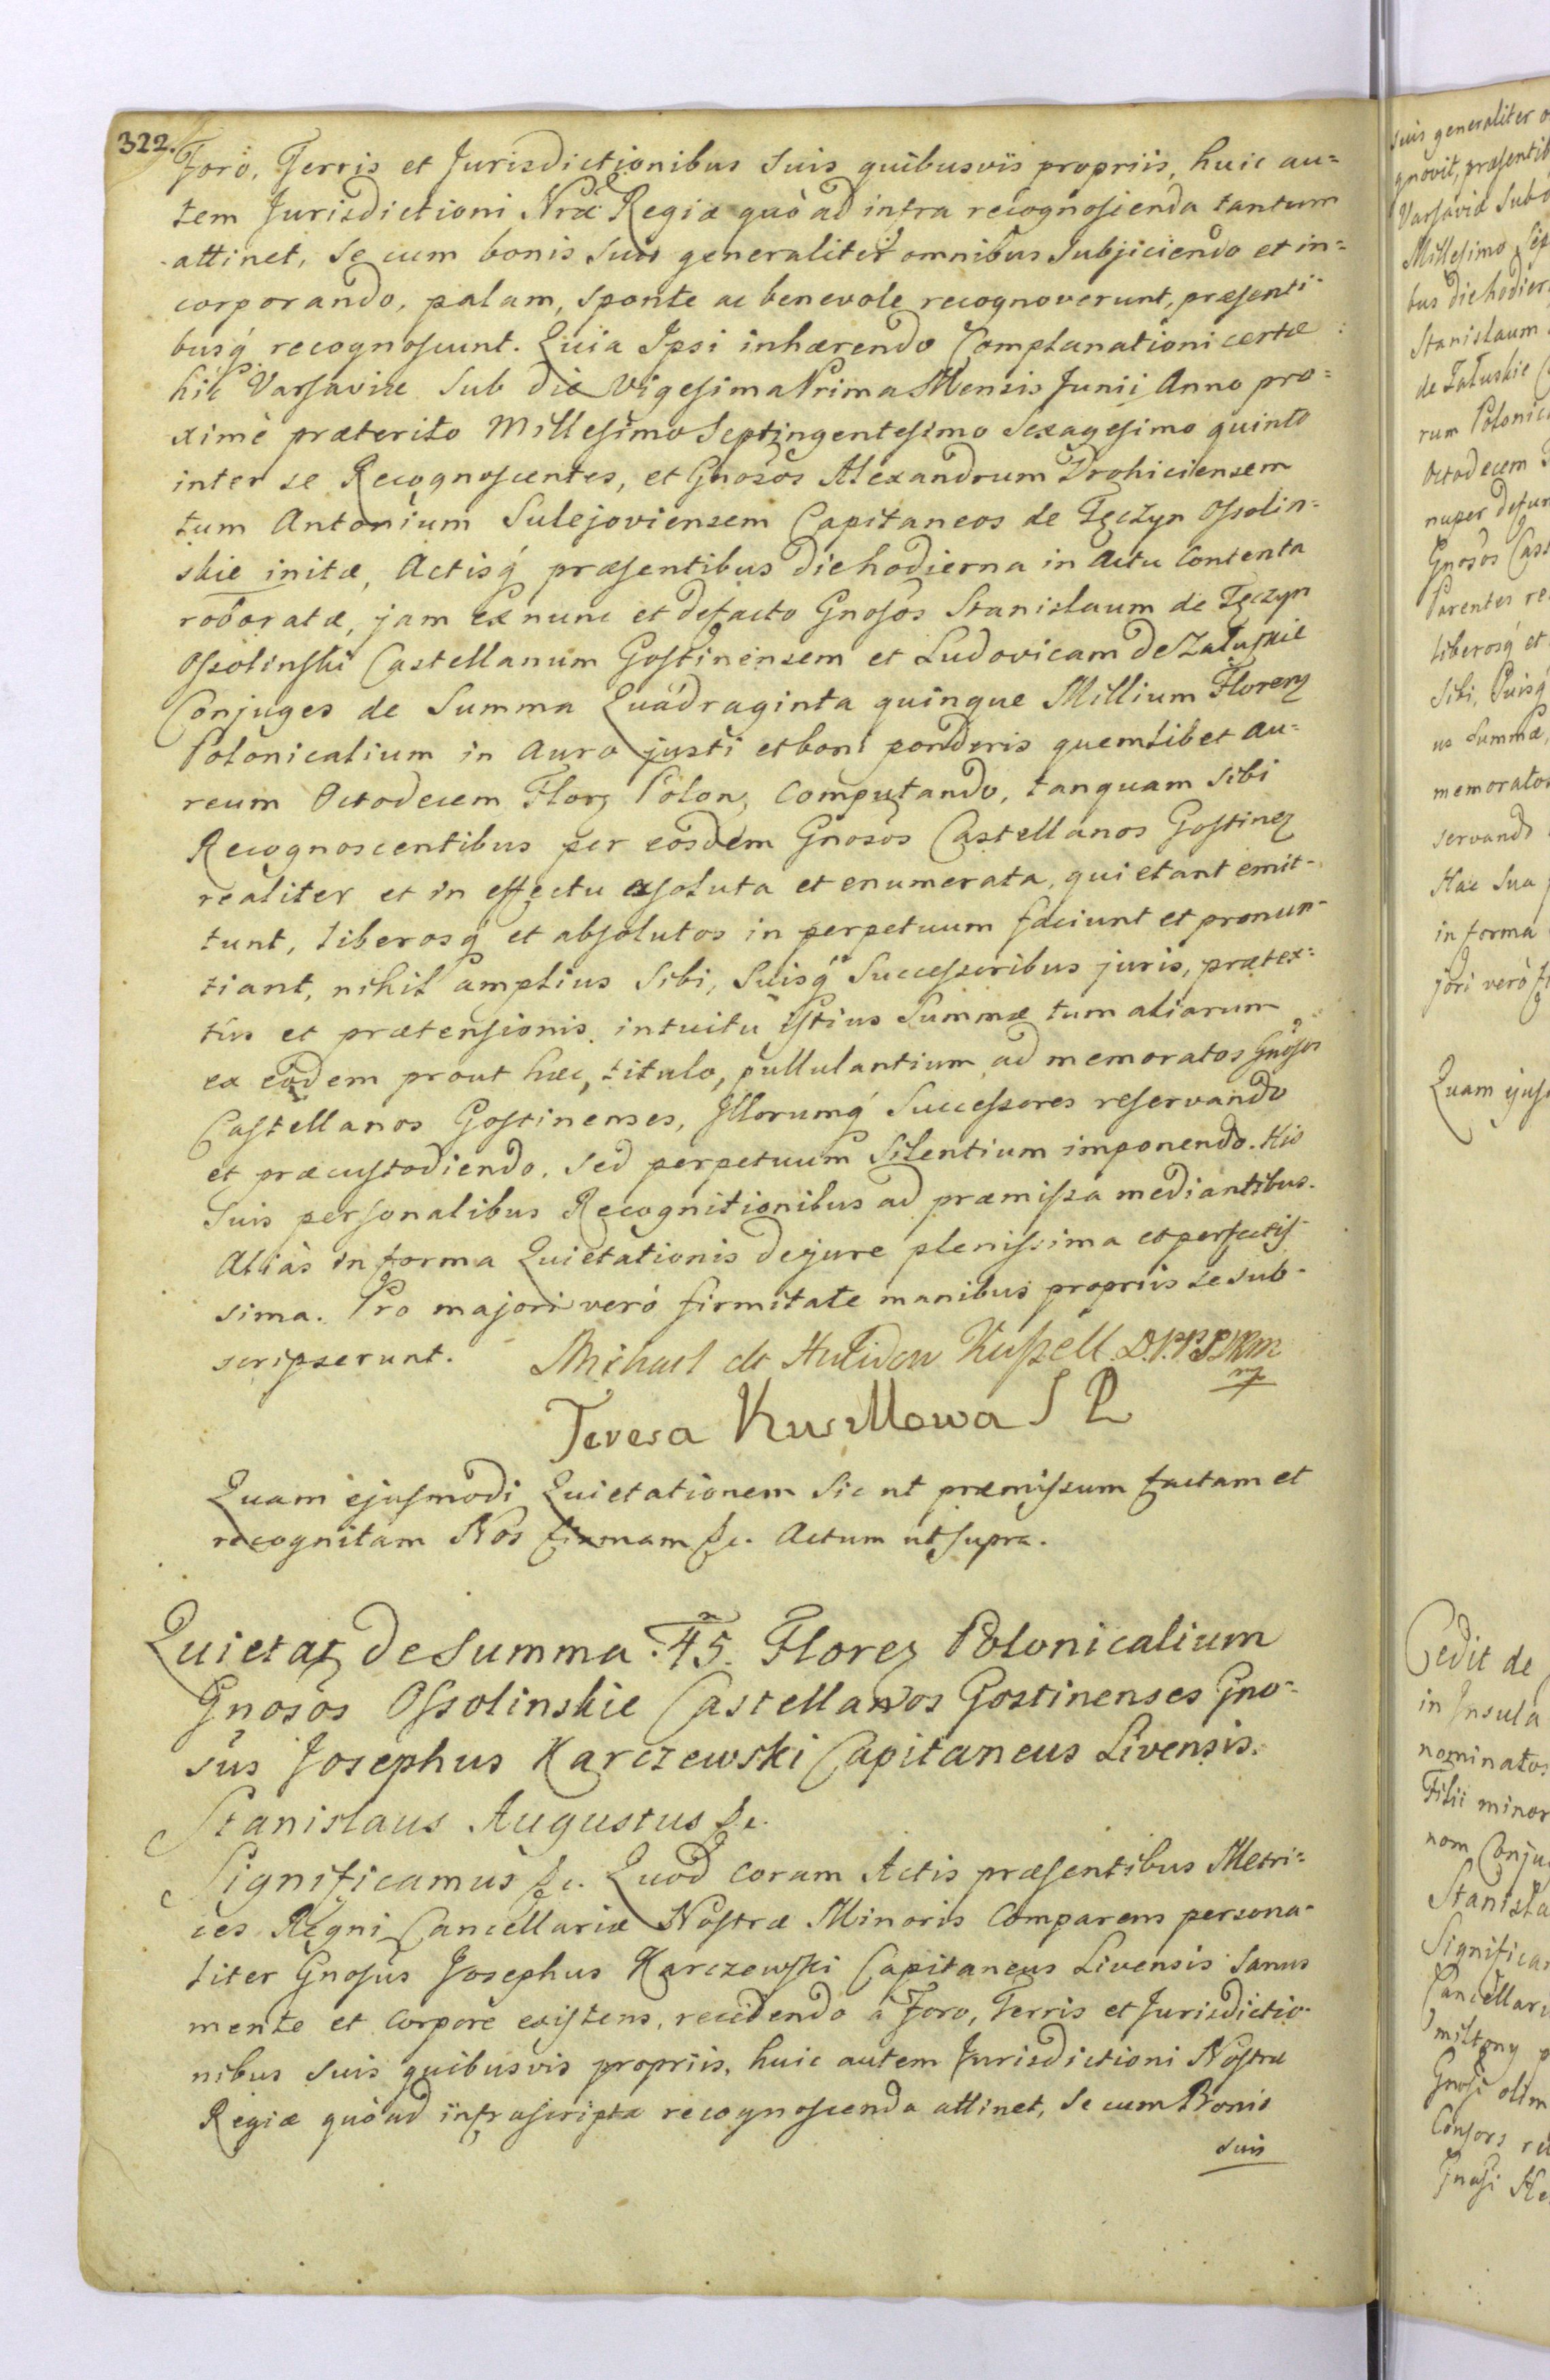 322.
Foro, Terris et Jurisdictionibus suis quibusvis propriis, huic au=
tem Jurisdictioni Nræ Regiæ quò ad infra recognoscenda tantum
attinet, se cum bonis suis generaliter omnibus subjiciendo et in=
corporando, palam, sponte ac benevole recognoverunt, præsenti-
busq́ recognoscunt. Quia Ipsi inhærendo Complanationi certæ
hic Varsaviæ sub die Vigesima Prima Mensis Junii Anno pro=
ximè præterito Millesimo Septingentesimo Sexagesimo quinto
inter se Recognoscentes, et Gnosos Alexandrum Drohiciensem
tum Antonium Sulejoviensem Capitaneos de Tęczyn Ossolin=
skie initæ, Actisq́ præsentibus die hodierna in Actu contenta
roboratæ, jam ex nunc et defacto Gnosos Stanislaum de Tęczyn
Ossolinski Castellanum Gostinensem et Ludovicam de Załuskie
Conjuges de Summa Quadraginta quinque Millium Florenz
Polonicalium in Auro justi et boni ponderis quemlibet au=
reum Octodecem Florz Polon, computando, tanquam sibi
Recognoscentibus per eosdem Gnosos Castellanos Gostinez
realiter et in effectu exsoluta et enumerata, quietant emit-
tunt, liberosq́ et absolutos in perpetuum faciunt et pronun-
tiant, nihil amplius sibi, suisq́ Successoribus juris, prætex=
tûs et prætensionis intuitu istius Summæ tum aliarum
ex eodem prout hæc, titulo, pullulantium ad memoratos Gnosos
Castellanos Gostinenses, Illorumq́ Successores reservando
et præcustodiendo. sed perpetuum Silentium imponendo. His
suis personalibus Recognitionibus ad præmissa mediantibus.
Aliàs in forma Quietationis dejure plenissima et perfectis-
sima. Pro majori verò firmitate manibus propriis se sub-
scripserunt.
Michael de Kuszell
mp
Teresa Kuszllowa S P
Quam ejusmodi Quietationem sic ut præmissum factam et
recognitam Nos firmam &c. Actum ut supra.
Quietat de Summa 45. Florez Polonicalium
Gnosos Ossolinskie Castellanos Gostinenses Gno-
sus Josephus Karczewski Capitaneus Livensis.
Stanislaus Augustus &c.
Significamus &c. Quod coram Actis præsentibus Metri=
ces Regni Cancellariæ Nostræ Minoris Comparens persona-
liter Gnosus Josephus Karczewski Capitaneus Livensis sanus
mente et corpore existens, recedendo à Foro, Terris et Jurisdictio-
nibus suis quibusvis propriis, huic autem Jurisdictioni Nostræ
Regiæ quò ad infrascripta recognoscenda attinet, se cum Bonis
suis
suis generaliter o
gnovit, præsentib
Varsaviæ sub
Millesimo Sep
bus die hodier
Stanislaum
de Załuskie
rum Polonic
Octodecem
nuper defun
Gnosos Cast
Parentes re
liberosq́ et
sibi, suisq́
us Summæ,
memorator
servando
Hac sua
in forma
jori verò f
Quam ejus
Cedit de
in Insula
nominatos
Filii minor
nom Conju
Stanisla
Significa
Cancellari
Gnosi olim
Consors re
Gnosi